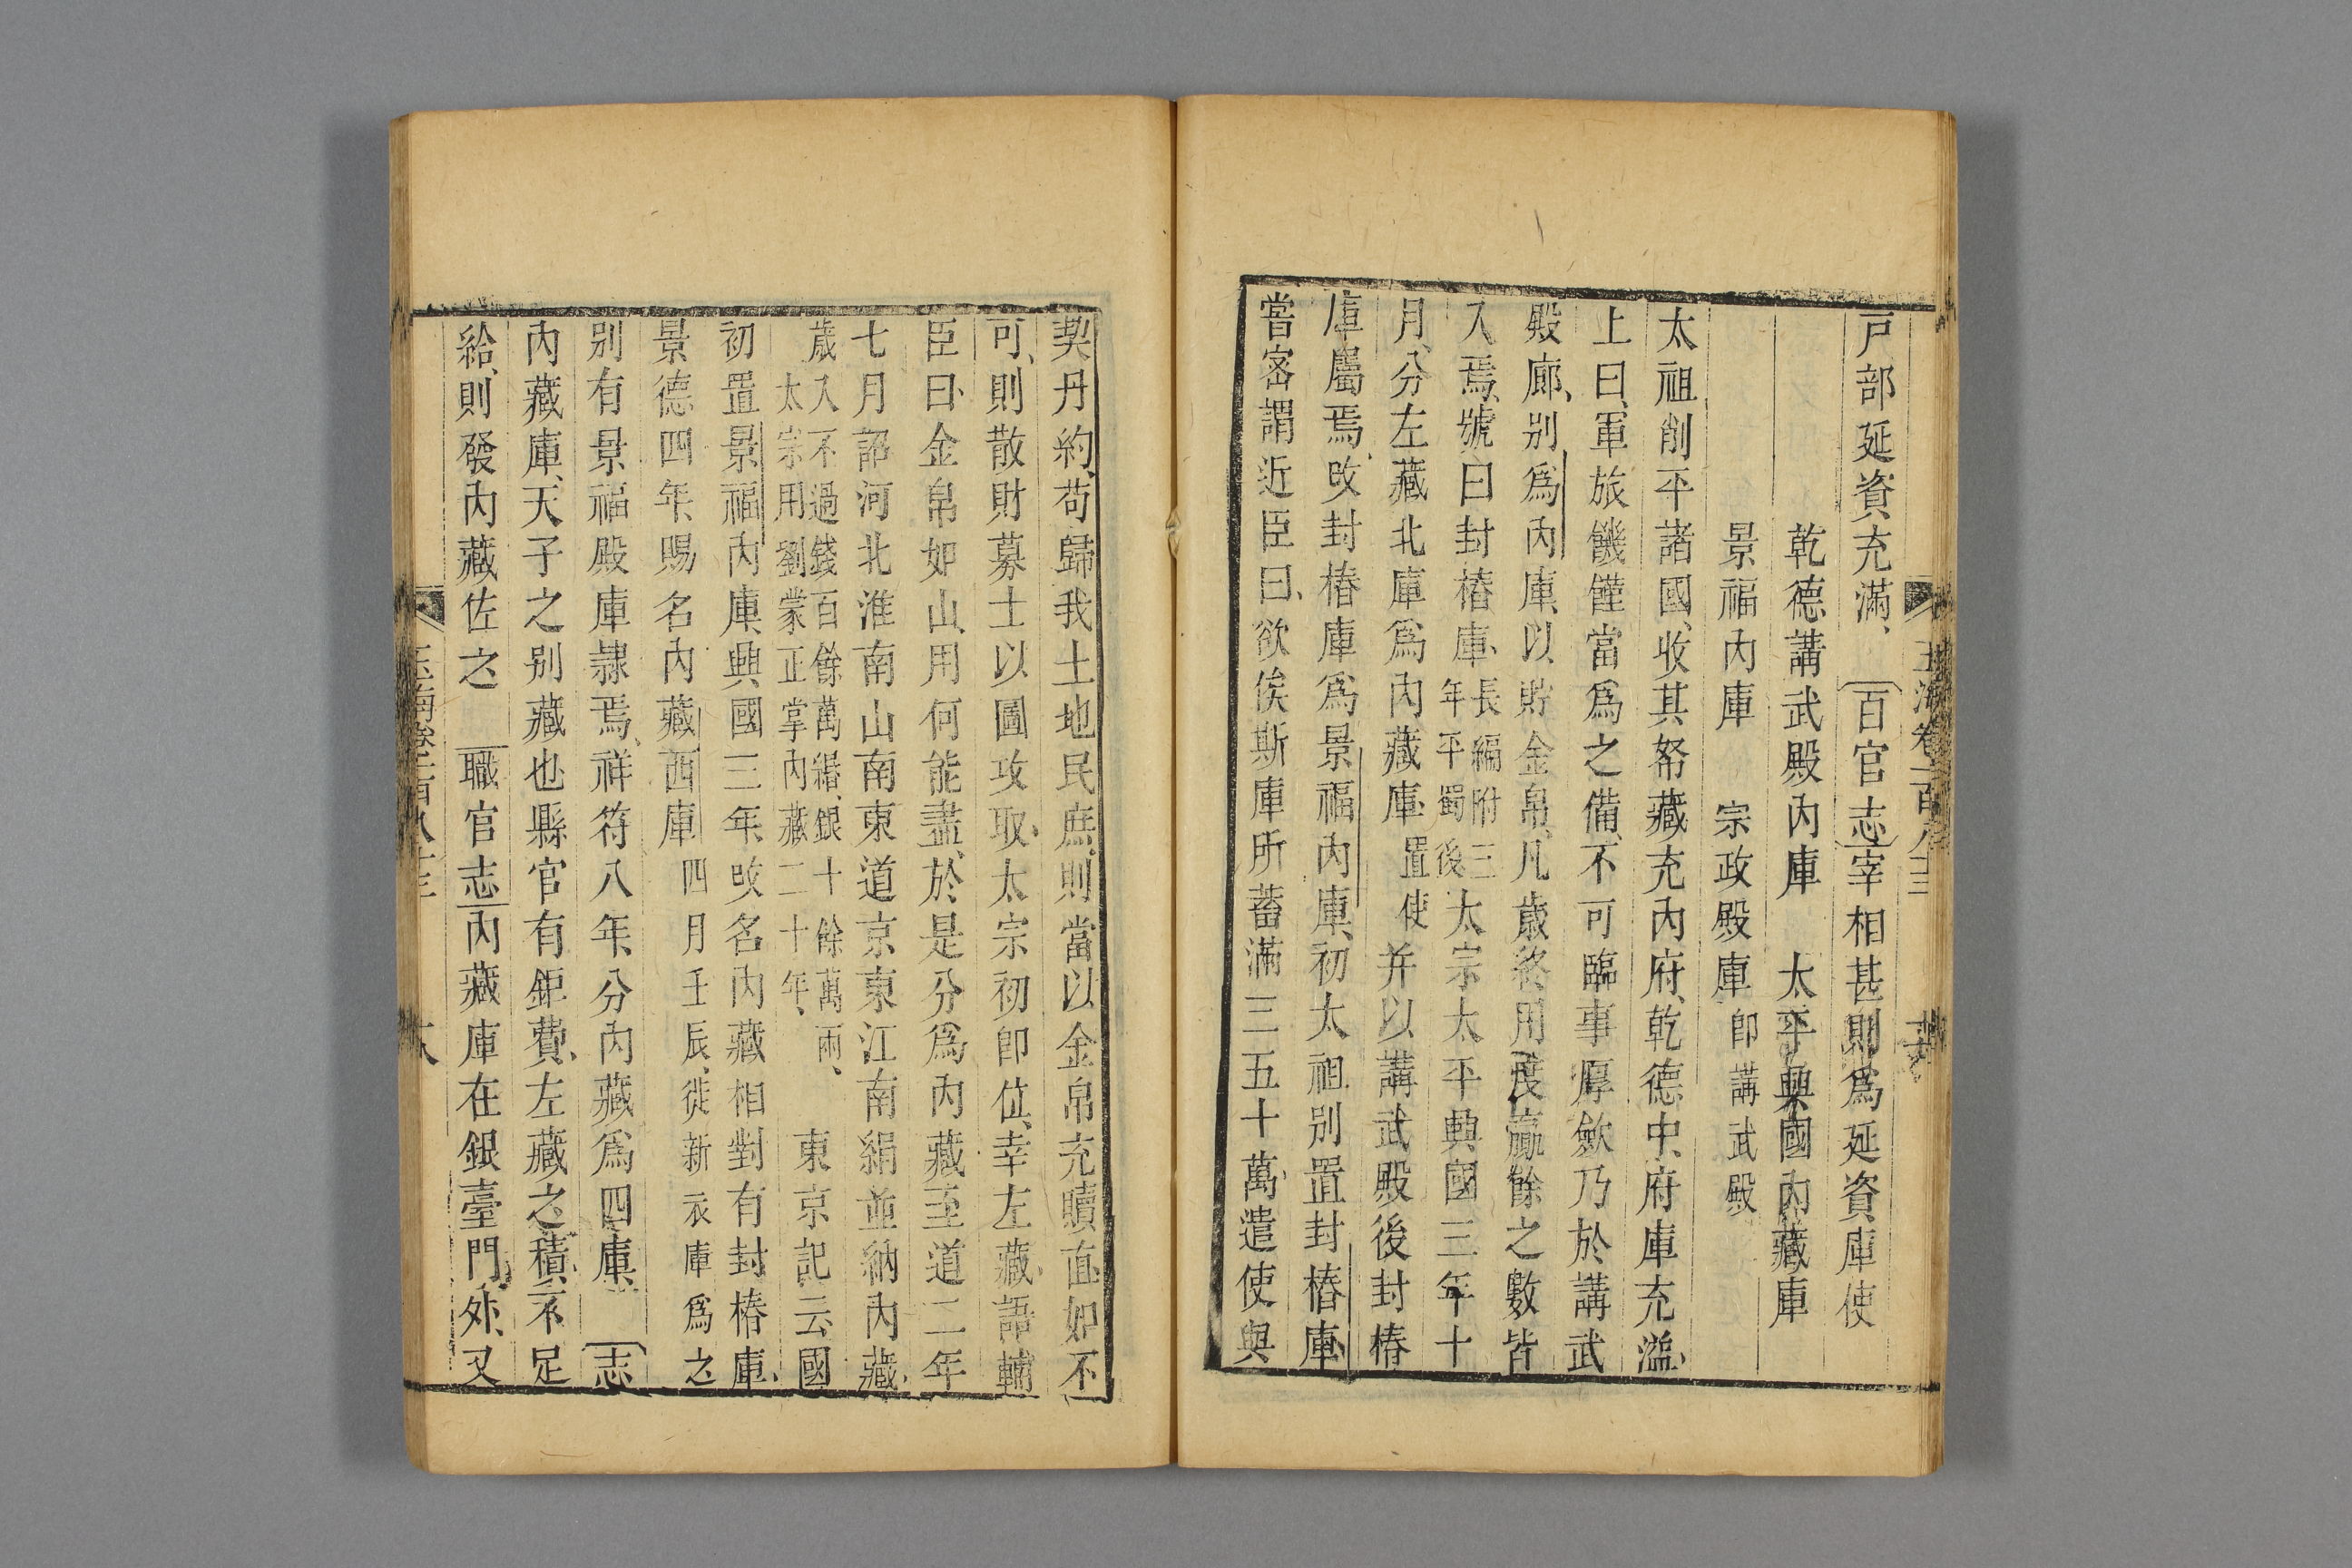 戸部延資充滿、百官志宰相甚則爲延資庫使
乾德講武殿内庫　太平興國内藏庫
景福内庫　宗政殿庫卽講武殿
太祖削平諸國、收其帑藏充内府、乾德中、府庫充溢、
上曰、軍旅饑饉當爲之備、不可臨事厚斂乃於講武
殿廊、别爲内庫、以貯金帛、凡歲終用度贏餘之數皆
入焉、號曰封樁庫、長編附三年平蜀後太宗太平興國三年十
月、分左藏北庫爲内藏庫置使并以講武殿後封樁
庫屬焉、改封樁庫爲景福内庫、初太祖别置封樁庫、
嘗密謂近臣曰、欲俟斯庫所蓄滿三五十萬、遣使與
契丹約、苟歸我土地民庶、則當以金帛充贖直如不
可、則散財募士以圖攻取、太宗初卽位、幸左藏、語輔
臣曰、金帛如山、用何能盡、於是分爲内藏至道二年
七月詔河北淮南山南東道京東江南絹並納内藏、
歲入不過錢百餘萬緡、銀十餘萬兩、太宗用劉蒙正掌内藏二十年、東京記云、國
初置景福内庫、興國三年、改名内藏相對有封樁庫、
景德四年、賜名内藏西庫四月壬辰、徙新衣庫爲之
别有景福殿庫隷焉、祥符八年、分内藏爲四庫、志
内藏庫、天子之别藏也縣官有鉅費、左藏之積不足
給、則發内藏佐之　職官志内藏庫在銀臺門外、又